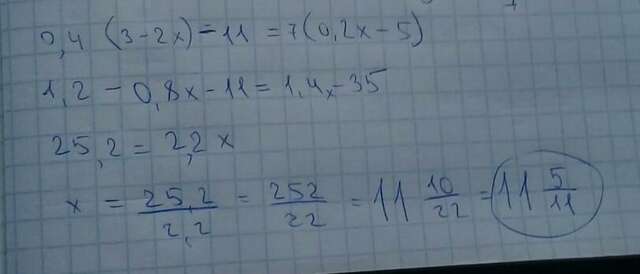 0,4 (3-2x)-11 =7(0,2x-5)
1,2 - 0,8x-11= 1,4x-35
25,2 = 2,2x
x = 25,2/2,2 = 252/22 = 11 10/22 = 11 5/11